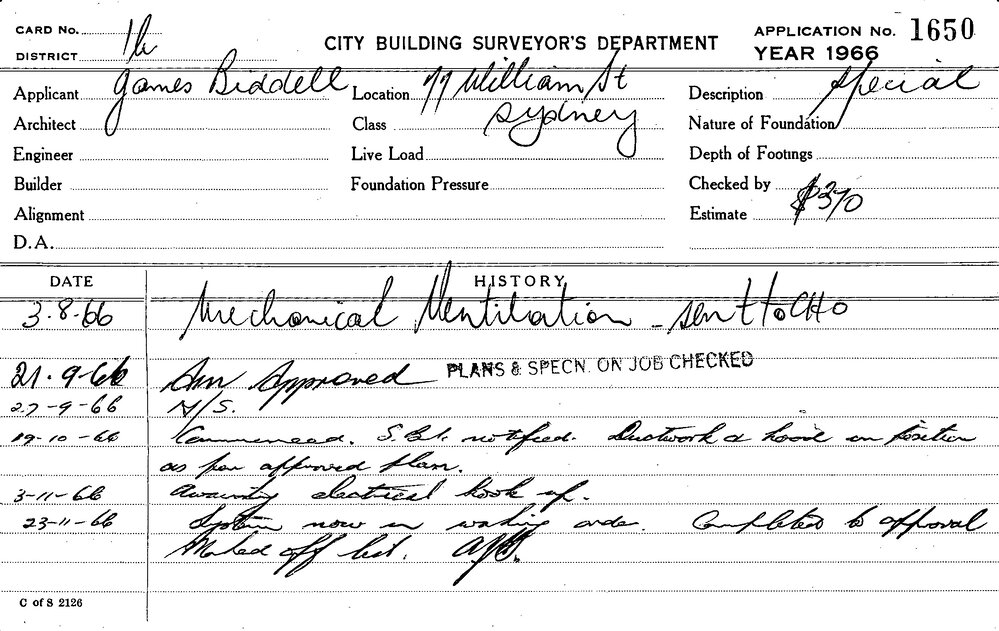 CARD No.
DISTRICT 1b
CITY BUILDING SURVEYOR'S DEPARTMENT
APPLICATION No. 1650
YEAR 1966
Applicant James Biddell
Location 77 William St
Sydney
Description Special
Architect
Class
Nature of Foundation
Engineer
Live Load
Depth of Footings
Builder
Foundation Pressure
Checked by
Alignment
Estimate $370
D.A.
DATE HISTORY
3.8.66 Mechanical Ventilation - sent to CHO
21.9.66 Approved PLANS & SPECN. ON JOB CHECKED
27-9-66 N/S.
19-10-66 Commenced. S.B.I. notified. Ductwork & hood in position
as per approved plan.
3-11-66 Awaiting electrical hook up.
23-11-66 System now in working order. Completed to approval
Marked off list.
C of S 2126